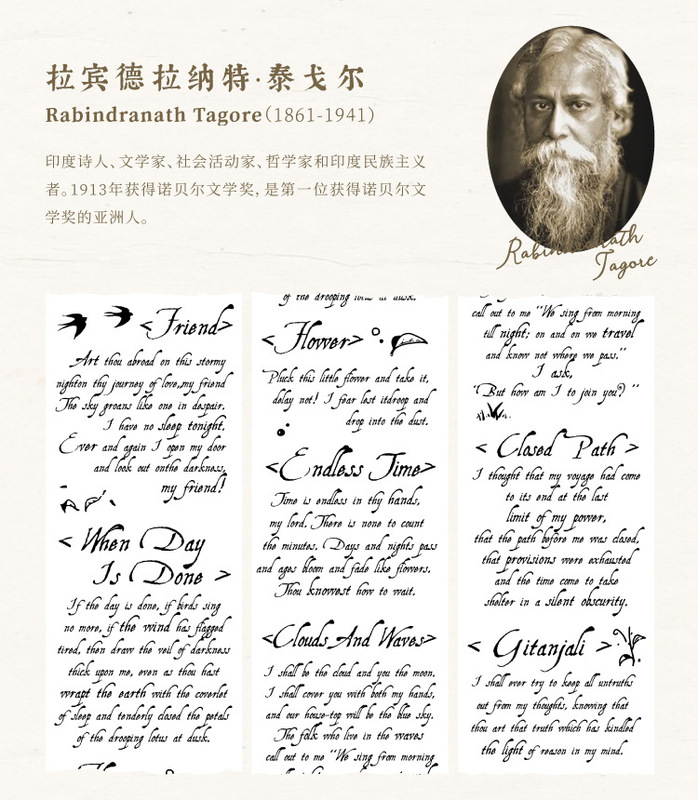 拉宾德拉纳特·泰戈尔
Rabindranath Tagore(1861-1941)
印度诗人、文学家、社会活动家、哲学家和印度民族主义
者。1913年获得诺贝尔文学奖,是第一位获得诺贝尔文
学奖的亚洲人。
Rabindranath
Tagore
<Friend>
Art thou abroad on this stormy
nighton thy journey of love,my friend
The sky groans like one in despair.
I have no sleep tonight.
Ever and again I open my door
and look out onthe darkness,
my friend!
< When Day
Is Done >
If the day is done, if birds sing
no more, if the wind has flagged
tired, then draw the veil of darkness
thick upon me, even as thou hast
wrapt the earth with the coverlet
of sleep and tenderly closed the petals
of the drooping lotus at dusk.
of the drooping lotus at dusk.
<Flower>
Pluck this little flower and take it,
delay not! I fear lest itdroop and
drop into the dust.
<Endless Time>
Time is endless in thy hands,
my lord. There is none to count
the minutes. Days and nights pass
and ages bloom and fade like flowers.
Thou knowest how to wait.
<Clouds And Waves>
I shall be the cloud and you the moon.
I shall cover you with both my hands,
and our house-top will be the blue sky.
The folk who live in the waves
call out to me "We sing from morning
call out to me "We sing from morning
till night; on and on we travel
and know not where we pass."
I ask,
"But how am I to join you?"
< Closed Path >
I thought that my voyage had come
to its end at the last
limit of my power,
that the path before me was closed,
that provisions were exhausted
and the time come to take
shelter in a silent obscurity.
< Gitanjali >
I shall ever try to keep all untruths
out from my thoughts, knowing that
thou art that truth which has kindled
the light of reason in my mind.